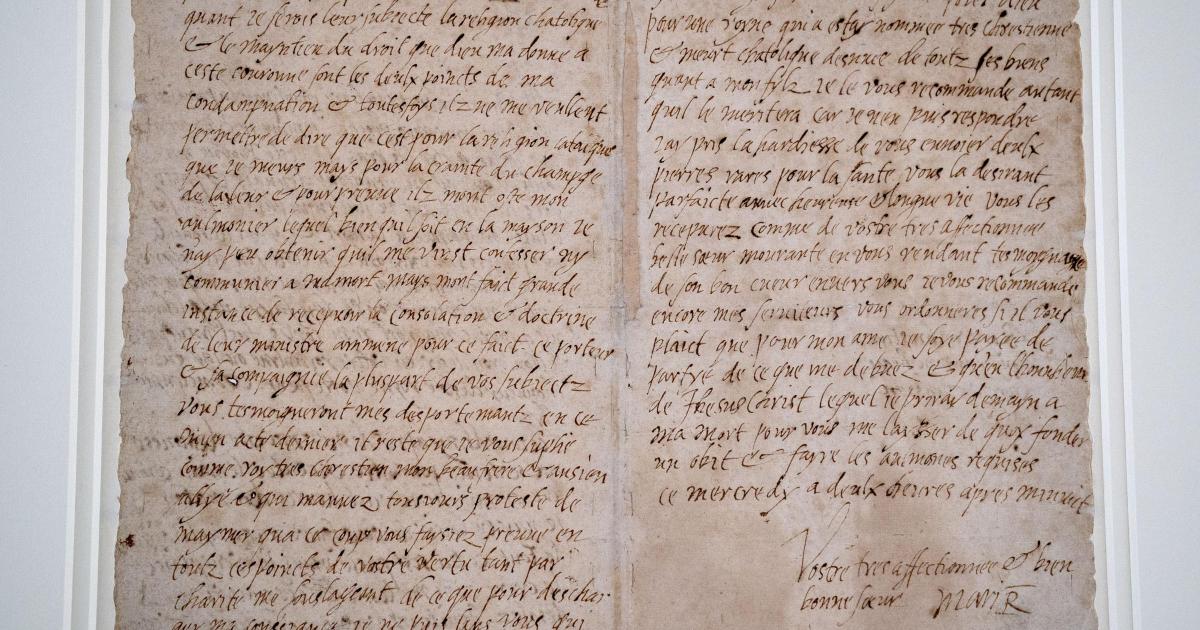 quant je serois leur subjecte la religion chatolique
& le mayntien du droit que dieu ma donne a
ceste couronne sont les deulx poincts de ma
condampnation & toutesfoys ilz ne me veullent
permettre de dire que cest pour la religion catolique
que je meurs mays pour la crainte du champge
de la leur & pour preuve ilz mont oste mon
aulmonier lequel bien quil soit en la mayson je
nay peu obtenir quil me vinst confesser ny
communier a ma mort mays mont faict grande
instance de recepvoir la consolation & doctrine
de leur ministre ammene pour ce faict ce porteur
& sa compaignie la pluspart de vos subjectz
vous tesmoigneront mes desportemantz en ce
mien acte dernier il reste que je vous suplie
comme roy tres chrestien mon beau frere & ansien
allye & qui mavvez tousjours proteste de
maymer qua ce coup vous faysiez preuve en
toutz ces poincts de vostre vertu tant par
charite me soulageant de ce que pour deschar
ger ma conscience je ne puis sans vous qui
pour une royne qui a estay nommee tres chrestienne
& meurt chatolique desnuee de toutz ses biens
quant a mon filz je le vous recommande autant
quil le meritera car je nen puis respondre
jay pris la hardiesse de vous envoier deulx
pierres rares pour la sante vous la desirant
parfaicte avvec heureuse & longue vie vous les
recepvrez comme de vostre tres affectionnee
belle soeur mourante en vous rendant tesmoygnage
de son bon cueur envers vous je vous recommande
encore mes serviteurs vous ordonneres si il vous
plaict que pour mon ame je soye payee de
partye de ce que me debvez & quen lhonneur
de Jhesus Christ lequel je priray demayn a
ma mort pour vous me laysser de quoy fonder
un obit & fayre les aulmones requises
ce mercredy a deulx heures apres minuict
Vostre tres affectionnee & bien
bonne soeur Mari R